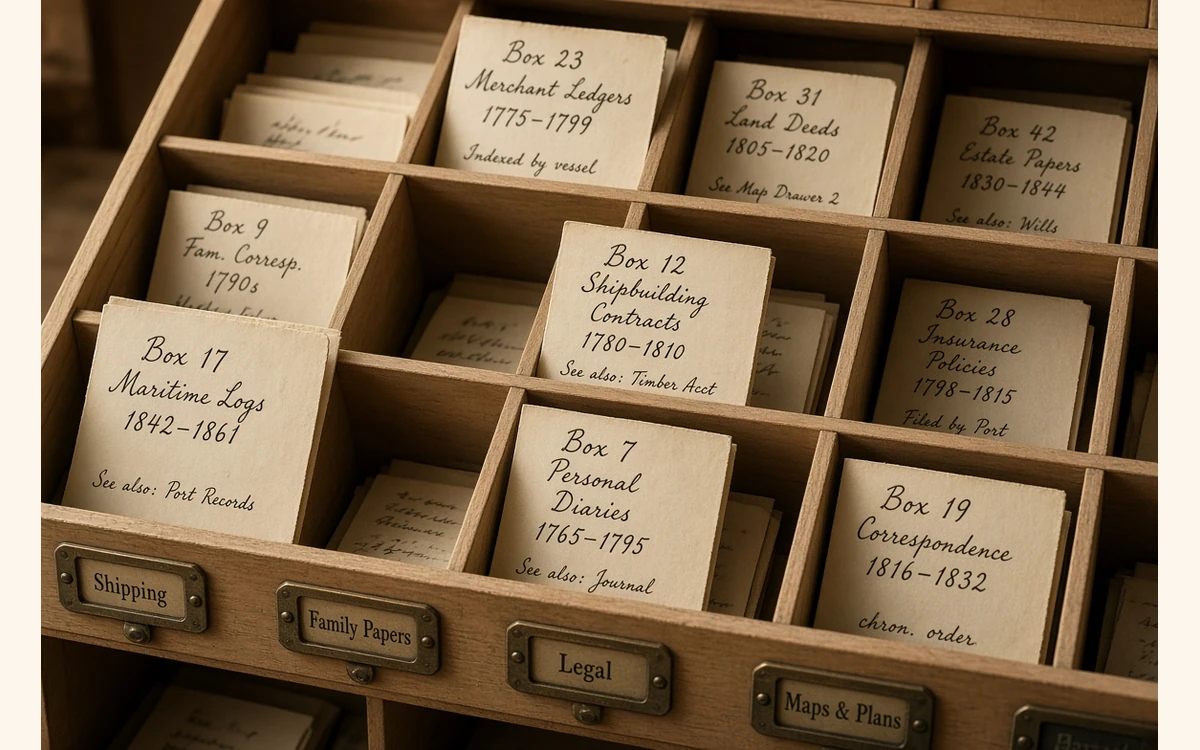 Box 23
Merchant Ledgers
1775–1799
Indexed by vessel
Box 31
Land Deeds
1805–1820
See Map Drawer 2
Box 42
Estate Papers
1830–1844
See also: Wills
Box 9
Fam. Corresp.
1790s
Box 12
Shipbuilding
Contracts
1780–1810
See also: Timber Acct
Box 28
Insurance
Policies
1798–1815
Filed by Port
Box 17
Maritime Logs
1842–1861
See also: Port Records
Box 7
Personal
Diaries
1765–1795
See also: Journal
Box 19
Correspondence
1816–1832
chron. order
Shipping
Family Papers
Legal
Maps & Plans